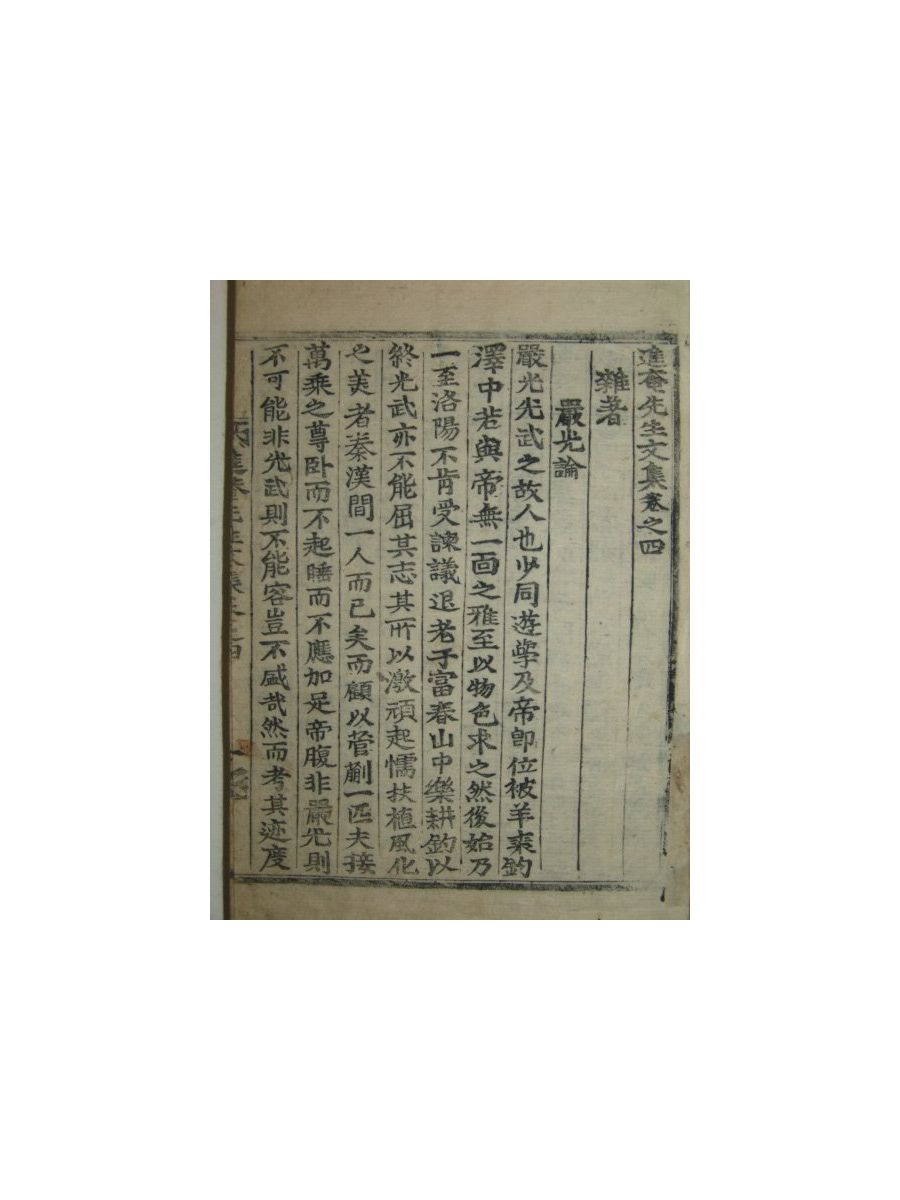 進菴先生文集卷之四
雜著
嚴光論
嚴光光武之故人也少同遊學及帝卽位被羊裘釣
澤中若與帝無一面之雅至以物色求之然後始乃
一至洛陽不肯受諫議退老于富春山中樂耕釣以
終光武亦不能屈其志其所以激頑起懦扶植風化
之美者秦漢間一人而已矣而顧以菅蒯一匹夫接
萬乘之尊卧而不起睡而不應加足帝腹非嚴光則
不可能非光武則不能容豈不盛哉然而考其迹度
進菴先生文集卷之四 一